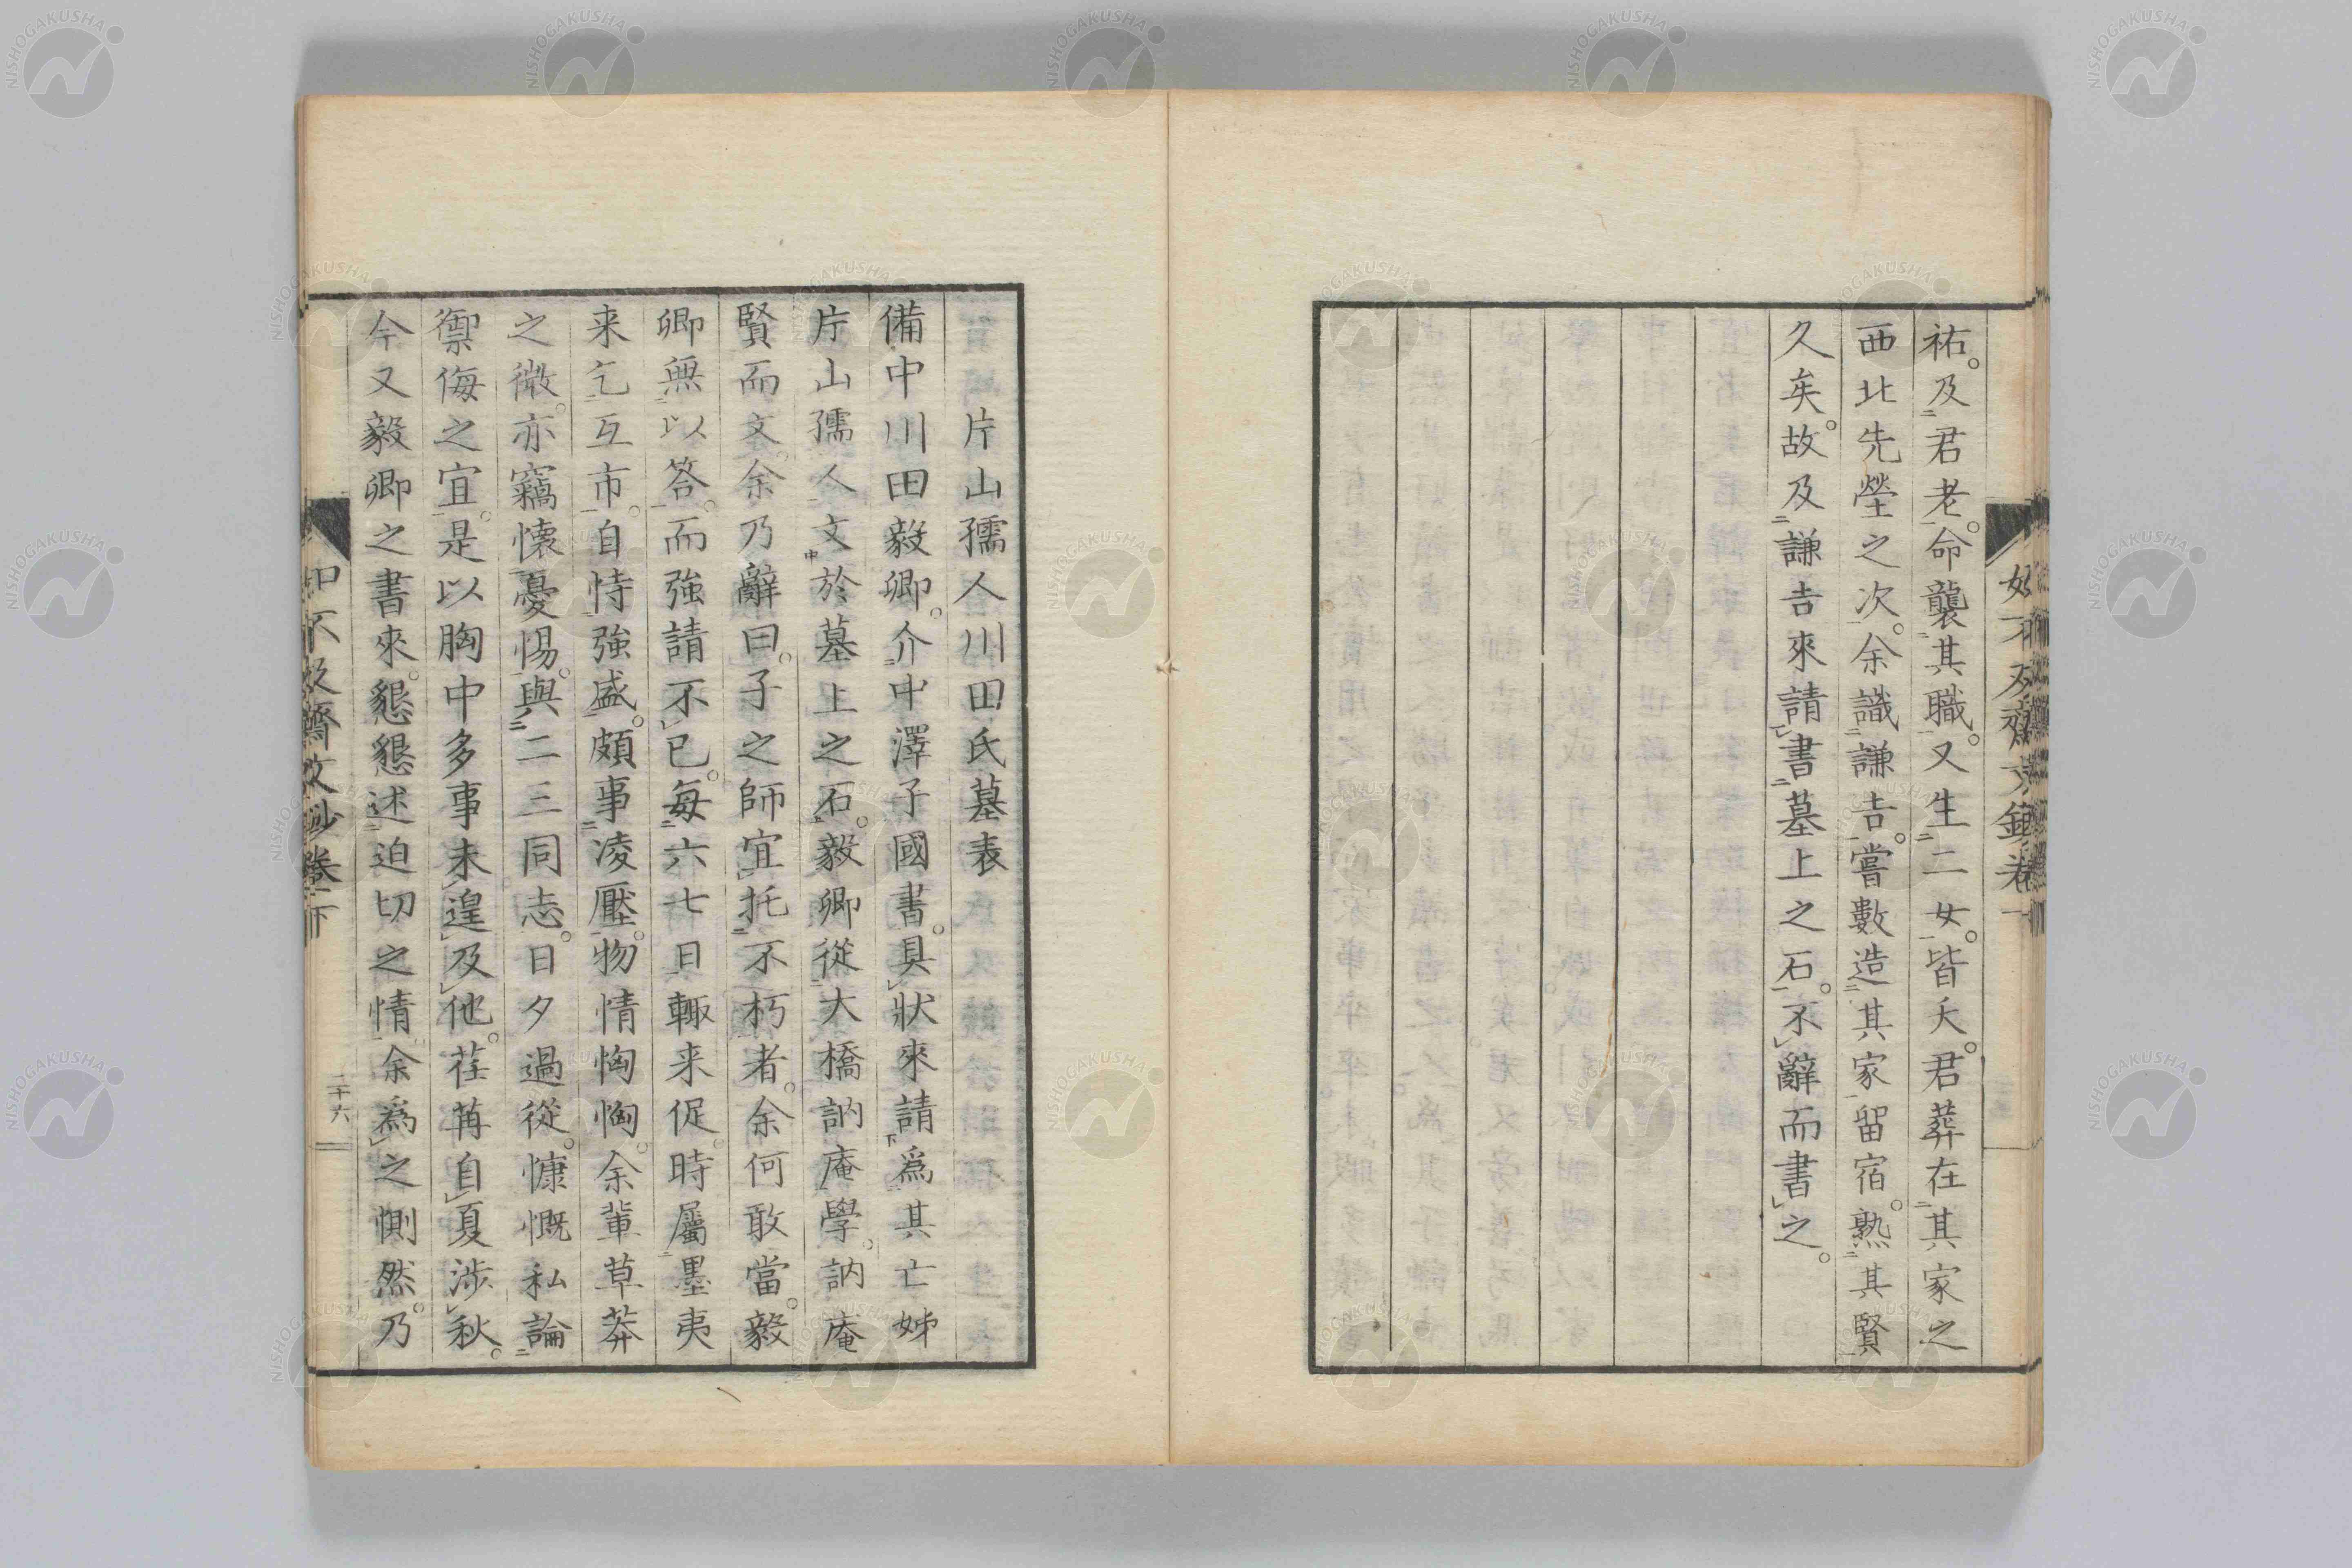 祐。及君老。命襲其職。又生二女。皆夭。君葬在其家之
西北先塋之次。余識謙吉。嘗數造其家留宿。熟其賢
久矣。故及謙吉來請書墓上之石。不辭而書之。
片山孺人川田氏墓表
備中川田毅卿。介中澤子國書。具狀來請爲其亡姊
片山孺人文於墓上之石。毅卿從大橋訥庵學。訥庵
賢而文。余乃辭曰。子之師宜托不朽者。余何敢當。毅
卿無以答。而強請不已。每六七日輙来促。時屬墨夷
来乞互市。自恃強盛。頗事凌壓。物情恟恟。余輩草莽
之微。亦竊懷憂惕。與二三同志。日夕過從。慷慨私論
禦侮之宜。是以胸中多事未遑及他。荏苒自夏涉秋。
今又毅卿之書來。懇懇述迫切之情。余爲之惻然。乃
二十六